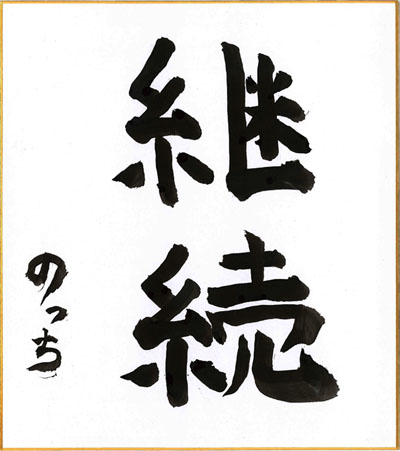 継続
のっち